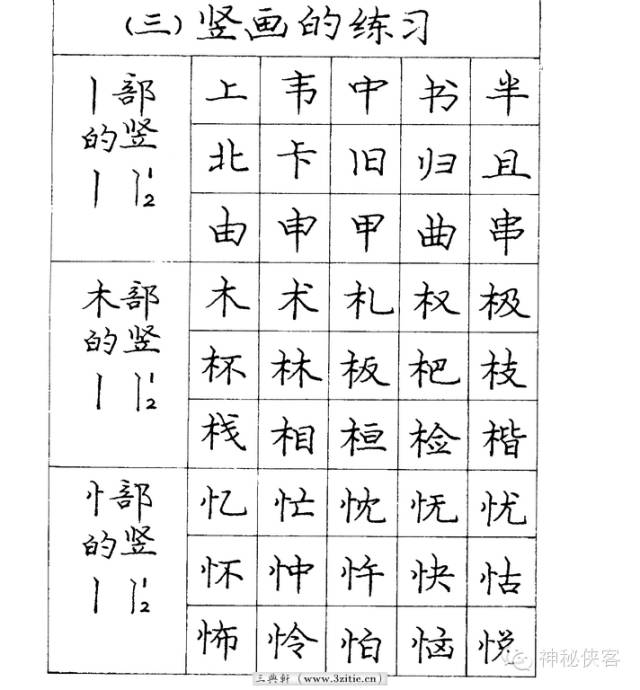 (三)竖画的练习
丨部的竖
丨 丨12
上 韦 中 书 半
北 卡 旧 归 且
由 申 甲 曲 串
木部的竖
丨 丨12
木 术 札 权 极
杯 林 板 杷 枝
栈 相 桓 检 楷
忄部的竖
丨 丨12
忆 忙 忱 怃 忧
怀 忡 忤 快 怙
怖 怜 怕 恼 悦
三典轩(www.3zitie.cn)
神秘侠客